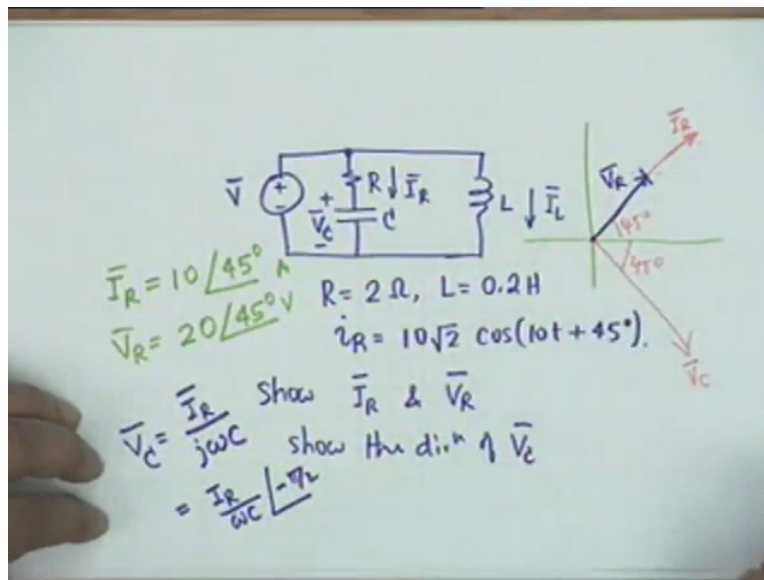 V̅ + - R ↓ I̅R + V̅C - C L ↓ I̅L
I̅R
V̅R
45°
45°
V̅C
I̅R = 10∠45° A
V̅R = 20∠45° V
R = 2 Ω, L = 0.2 H
iR = 10√2 cos(10t + 45°).
Show I̅R & V̅R
V̅C = I̅R / jωC show the dirⁿ of V̅C
= IR / ωC ∠-π/2